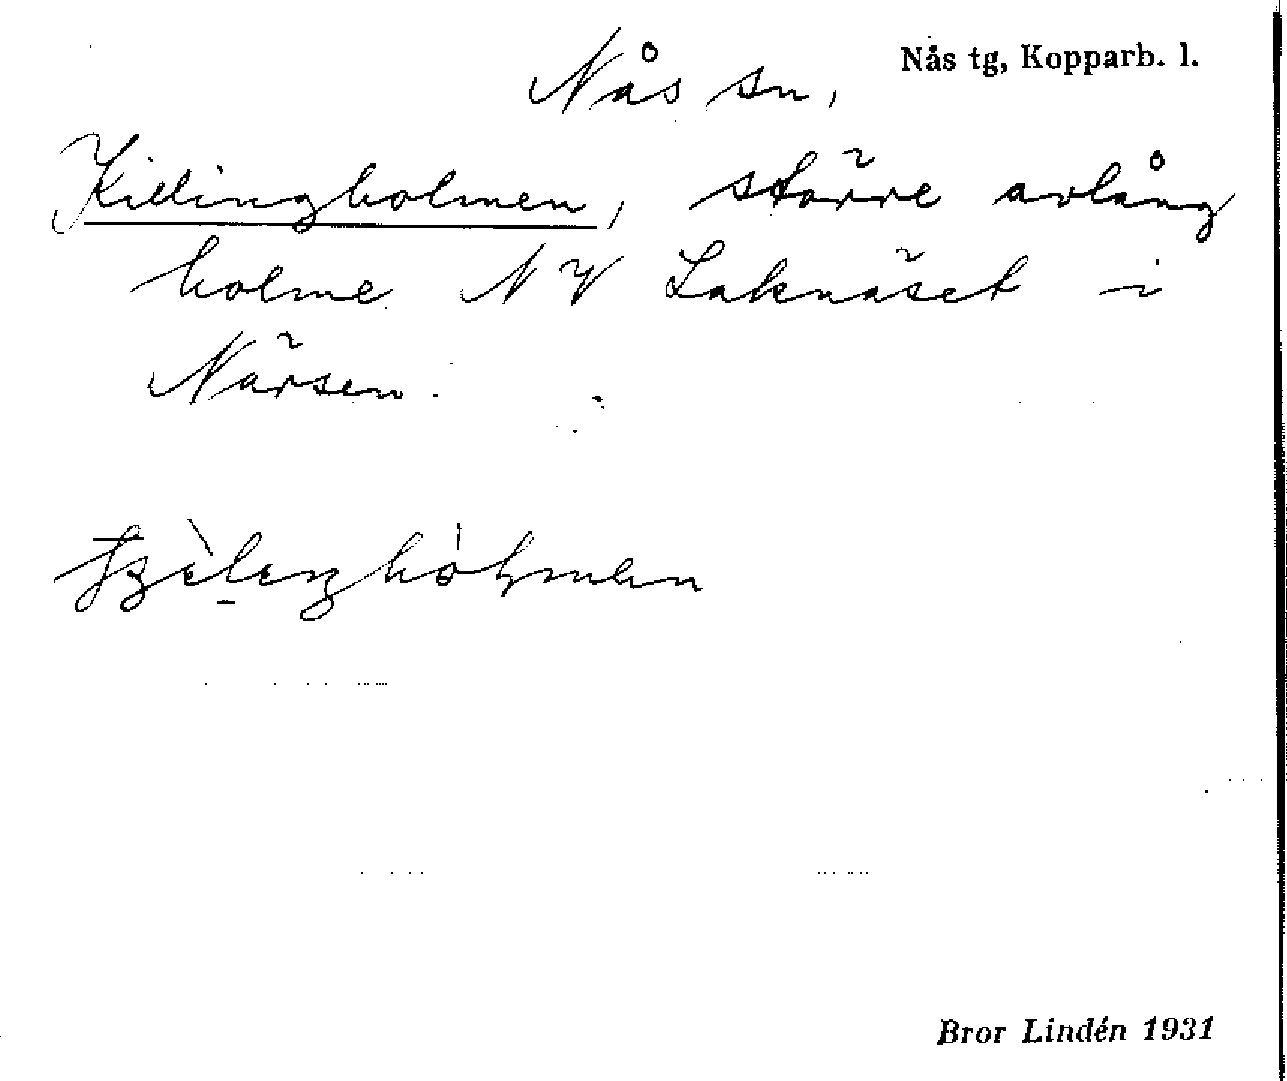 Nås tg, Kopparb. l.
Nås sn,
Killingholmen, större avlång
holme NV Laknäset i
Närsen.
Bror Lindén 1931